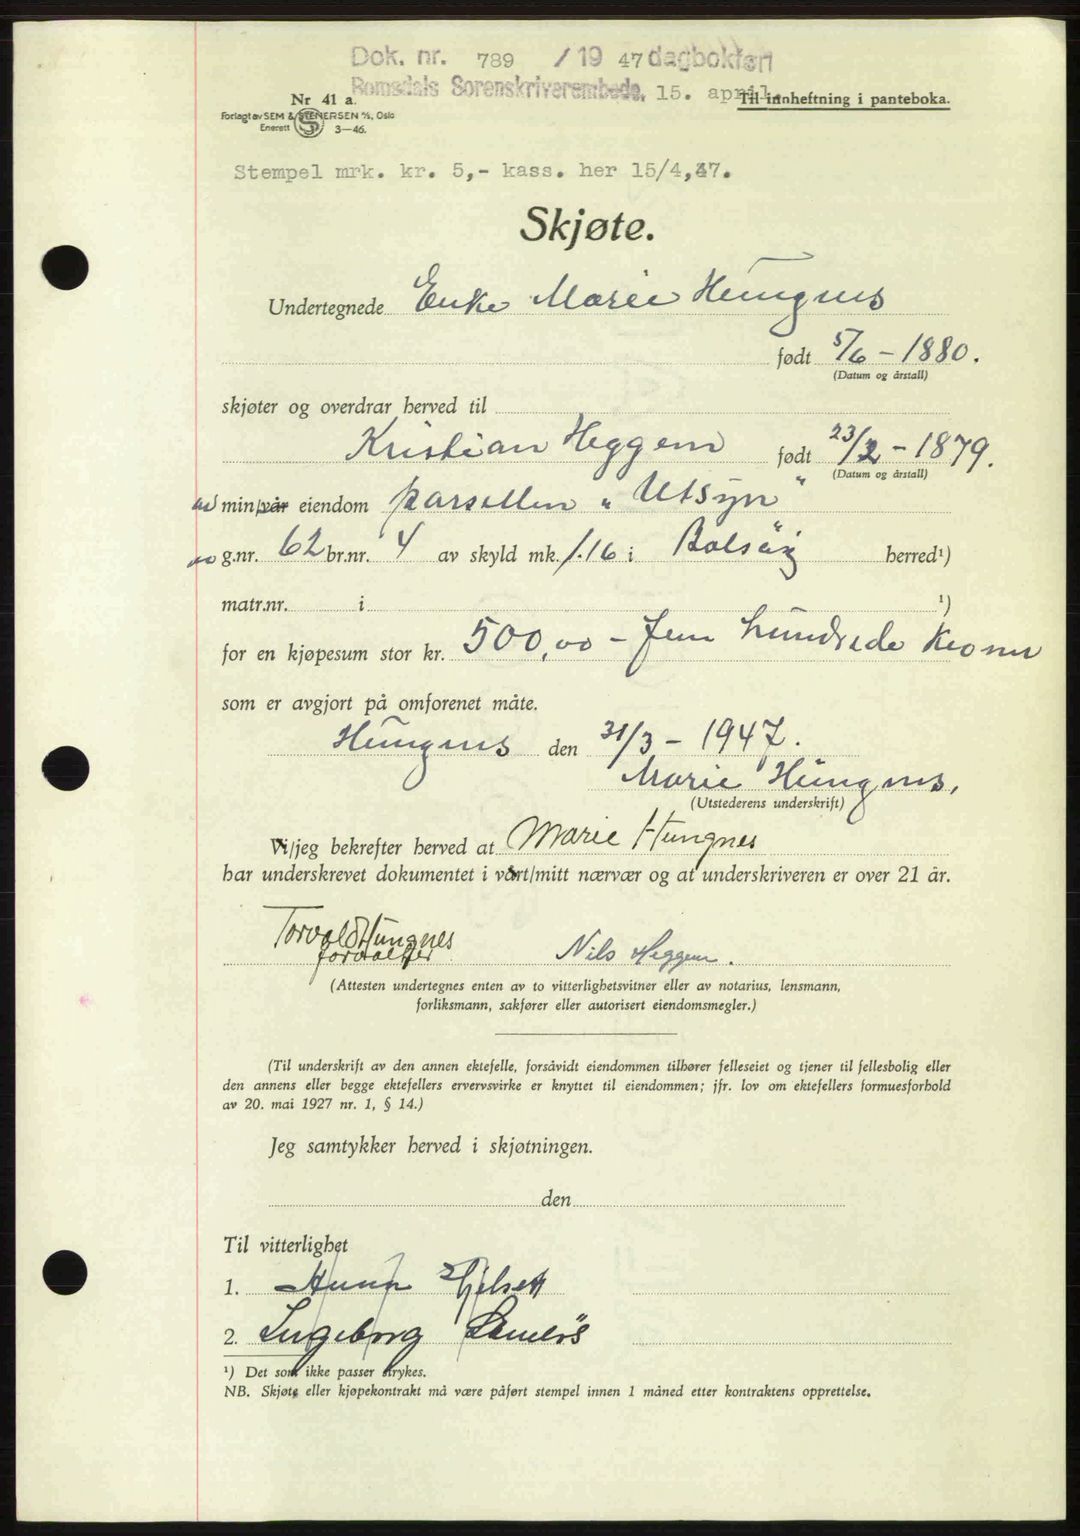 Dok. nr. 789 / 19 47 dagbokført
Romsdals Sorenskriverembede, 15. april.
Nr 41 a.
Til innheftning i panteboka.
Forlagt av SEM & STENERSEN A/S, Oslo
Enerett S 3—46.
Stempel mrk. kr. 5,- kass. her 15/4,47.
Skjøte.
Undertegnede Enke Marie Hungnes
født 5/6 – 1880.
(Datum og årstall)
skjøter og overdrar herved til
Kristian Heggem født 23/2 – 1879.
(Datum og årstall)
min/vår eiendom parsellen "Utsyn"
g.nr. 62 br.nr. 4 av skyld mk. 1.16 i Bolsøy herred¹)
matr.nr. i ¹)
for en kjøpesum stor kr. 500,00 – Fem hundrede Kroner
som er avgjort på omforenet måte.
Hungnes den 31/3 – 1947.
Marie Hungnes,
(Utstederens underskrift)
Vi/jeg bekrefter herved at Marie Hungnes
har underskrevet dokumentet i vårt/mitt nærvær og at underskriveren er over 21 år.
Torvald Hungnes
forvalter
Nils Heggem.
(Attesten undertegnes enten av to vitterlighetsvitner eller av notarius, lensmann,
forliksmann, sakfører eller autorisert eiendomsmegler.)
(Til underskrift av den annen ektefelle, forsåvidt eiendommen tilhører felleseiet og tjener til fellesbolig eller
den annens eller begge ektefellers ervervsvirke er knyttet til eiendommen; jfr. lov om ektefellers formuesforhold
av 20. mai 1927 nr. 1, § 14.)
Jeg samtykker herved i skjøtningen.
den
Til vitterlighet
1. Hjelset
2. Ingeborg
¹) Det som ikke passer strykes.
NB. Skjøte eller kjøpekontrakt må være påført stempel innen 1 måned etter kontraktens opprettelse.